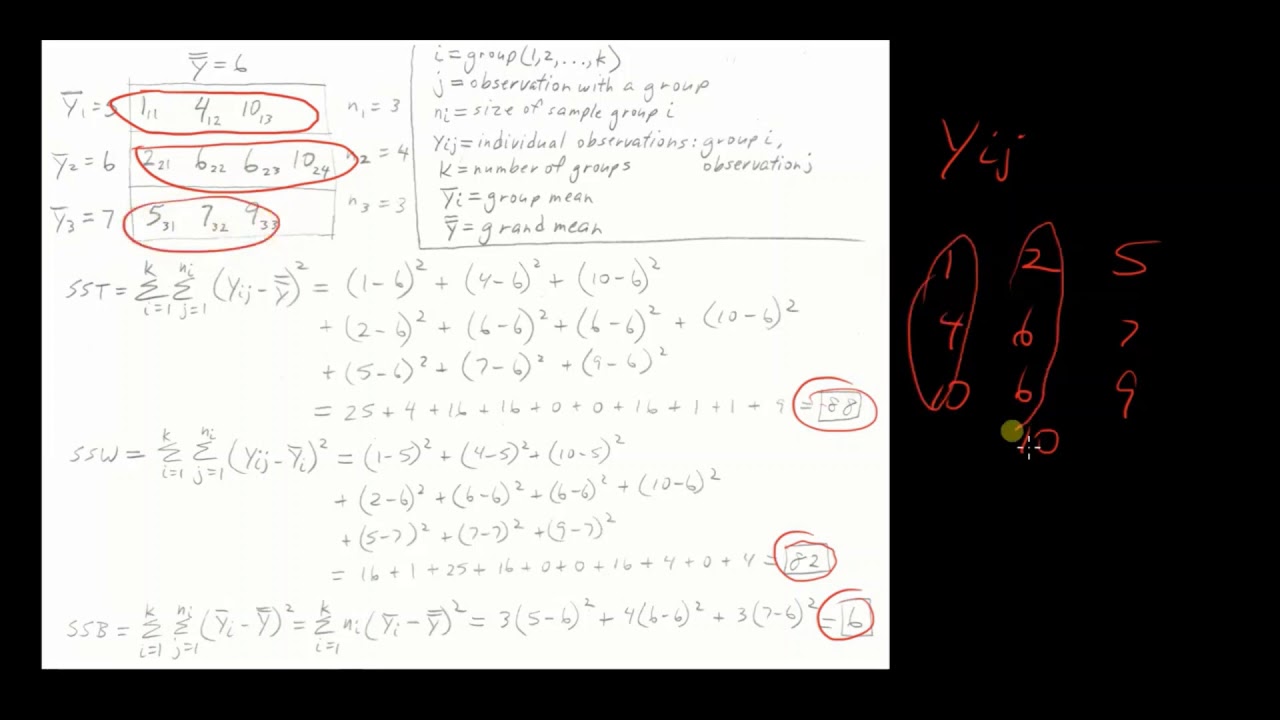 Y̿ = 6
Ȳ₁ = 5 1₁₁ 4₁₂ 10₁₃ n₁ = 3
Ȳ₂ = 6 2₂₁ 6₂₂ 6₂₃ 10₂₄ n₂ = 4
Ȳ₃ = 7 5₃₁ 7₃₂ 9₃₃ n₃ = 3
i = group(1,2,...,k)
j = observation with a group
nᵢ = size of sample group i
Yij = individual observations: group i,
observation j
K = number of groups
Ȳᵢ = group mean
Y̿ = grand mean
SST = Σ_{i=1}^{k} Σ_{j=1}^{nᵢ} (Yij − Y̿)² = (1−6)² + (4−6)² + (10−6)²
+ (2−6)² + (6−6)² + (6−6)² + (10−6)²
+ (5−6)² + (7−6)² + (9−6)²
= 25 + 4 + 16 + 16 + 0 + 0 + 16 + 1 + 1 + 9 = 88
SSW = Σ_{i=1}^{k} Σ_{j=1}^{nᵢ} (Yij − Ȳᵢ)² = (1−5)² + (4−5)² + (10−5)²
+ (2−6)² + (6−6)² + (6−6)² + (10−6)²
+ (5−7)² + (7−7)² + (9−7)²
= 16 + 1 + 25 + 16 + 0 + 0 + 16 + 4 + 0 + 4 = 82
SSB = Σ_{i=1}^{k} Σ_{j=1}^{nᵢ} (Ȳᵢ − Y̿)² = Σ_{i=1}^{k} nᵢ(Ȳᵢ − Y̿)² = 3(5−6)² + 4(6−6)² + 3(7−6)² = 6
Yij
1 2 5
4 6 7
10 6 9
10